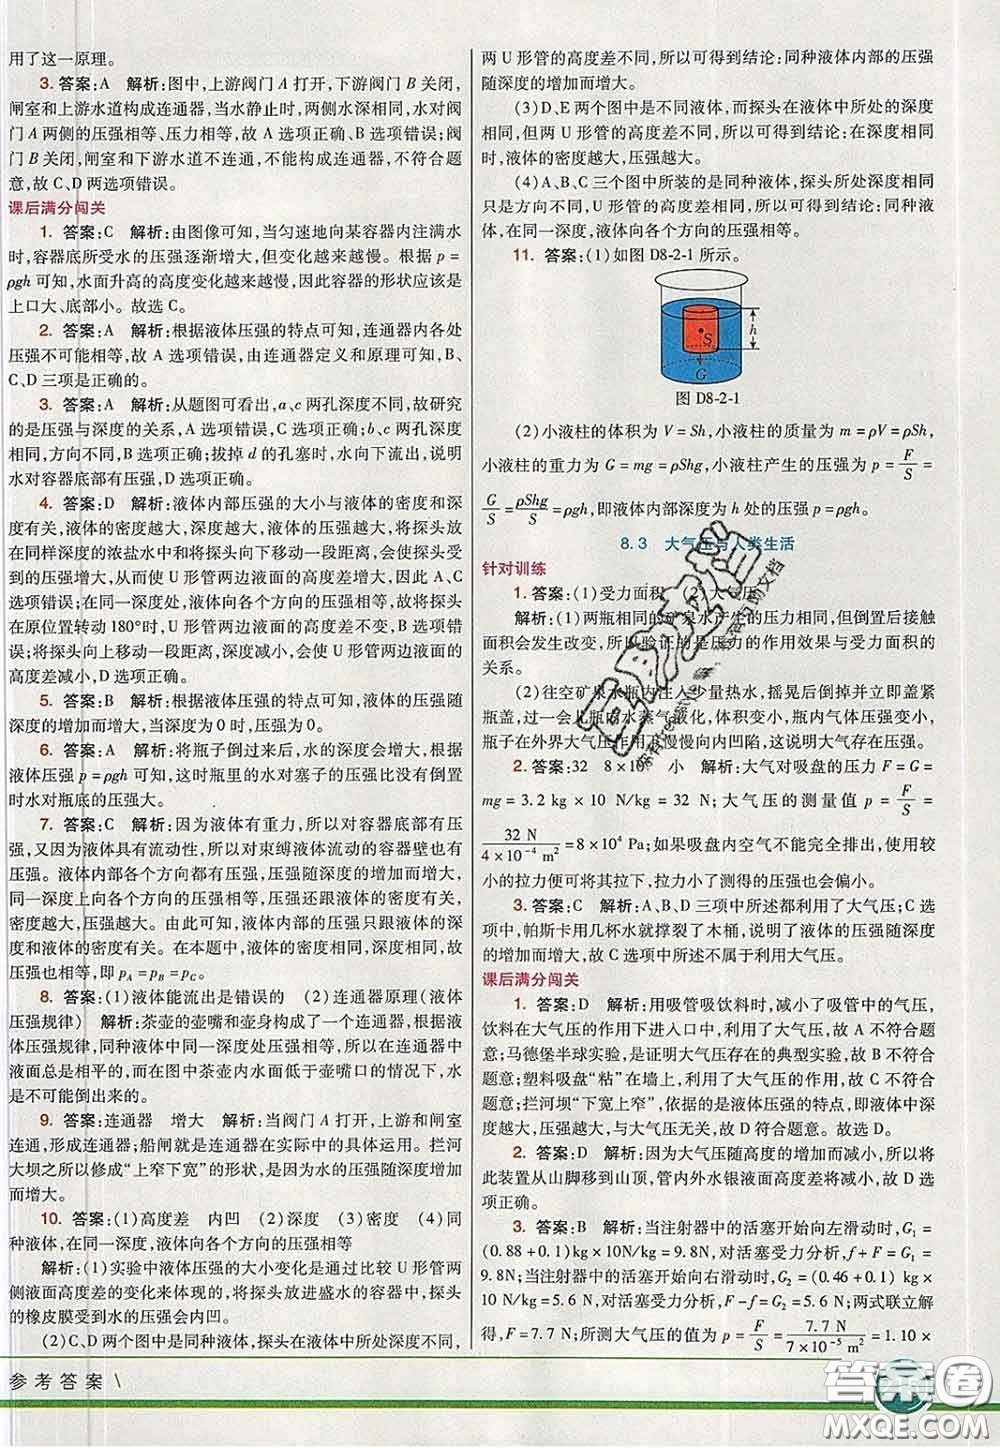 用了这一原理。
3. 答案:A 解析:图中,上游阀门 A 打开,下游阀门 B 关闭,
闸室和上游水道构成连通器,当水静止时,两侧水深相平,水对阀
门 A 两侧的压强相等、压力相等,故 A 选项正确、B 选项错误;阀
门 B 关闭,闸室和下游水道不连通,不能构成连通器,不符合题
意,故 C、D 两选项错误。
课后满分闯关
1. 答案:C 解析:由图像可知,当匀速地向某容器内注满水
时,容器底所受水的压强逐渐增大,但变化越来越慢。根据 p =
ρgh 可知,水面升高的高度变化越来越慢,因此容器的形状应该是
上口大、底部小。故选 C。
2. 答案:A 解析:根据液体压强的特点可知,连通器内各处
压强不可能相等,故 A 选项错误,由连通器定义和原理可知,B、
C、D 三项是正确的。
3. 答案:A 解析:从题图可看出,a、c 两孔深度不同,故研究
的是压强与深度的关系,A 选项正确,C 选项错误;b、c 两孔深度
不同,方向不同,B 选项错误;拔掉 d 的孔塞时,水向下流出,说明
水对容器底部有压强,D 选项正确。
4. 答案:D 解析:液体内部压强的大小与液体的密度和深
度有关,液体的密度越大,深度越大,液体的压强越大,将探头放
在同样深度的浓盐水中和将探头向下移动一段距离,会使探头受
到的压强变大,使 U 形管两边液面的高度差增大,因此 A、C 选
项错误;在同一深度处,液体向各个方向的压强相等,所以将探头
在原位置转动 180°时,U 形管两边液面的高度差不变,B 选项错
误;将探头向上移动一段距离,深度减小,会使 U 形管两边液面的
高度差减小,D 选项正确。
5. 答案:B 解析:根据液体压强的特点可知,液体的压强随
深度的增加而增大,当深度为 0 时,压强为 0。
6. 答案:A 解析:将瓶子倒过来后,水的深度增大,根据
液体压强 p = ρgh 可知,这时瓶里的水对塞子的压强比没有倒置
时水对瓶底的压强大。
7. 答案:C 解析:因为液体有重力,所以对容器底部有压
强,又因为液体具有流动性,所以对束缚液体流动的容器壁也有
压强。液体内部各个方向都有压强,压强随深度的增加而增大,
同一深度向各个方向的压强相等,压强还跟液体的密度有关,
密度越大,压强越大。由此可知,液体内部的压强只跟液体的深
度和液体的密度有关。在本题中,液体的密度相同,深度相同,故
压强也相等,即 p_A = p_B = p_C。
8. 答案:(1)液体能流出是错误的 (2)连通器原理(液体
压强规律) 解析:茶壶的壶嘴和壶身构成了一个连通器,根据液
体压强规律,同种液体中同一深度处压强相等,所以在连通器中
液面总是相平的,而在图中茶壶内水面低于壶嘴口的情况下,水
是不可能倒出来的。
9. 答案:连通器 增大 解析:当阀门 A 打开,上游和闸室
连通,形成连通器;船闸就是连通器在实际中的具体运用。拦河
大坝之所以修成“上窄下宽”的形状,是因为水的压强随深度增加
而增大。
10. 答案:(1)高度差 内凹 (2)深度 (3)密度 (4)同
种液体,在同一深度,液体向各个方向的压强相等
解析:(1)实验中液体压强的大小变化是通过比较 U 形管两
侧液面高度差的变化来体现的,将探头放进盛水的容器中,探头
的橡皮膜受到水的压强会内凹。
(2)C、D 两个图中是同种液体,探头在液体中所处深度不同,
两 U 形管的高度差不同,所以可得到结论:同种液体内部的压强
随深度的增加而增大。
(3)D、E 两个图中是不同液体,而探头在液体中所处的深度
相同,但两 U 形管的高度差不同,所以可得到结论:在深度相同
时,液体的密度越大,压强越大。
(4)A、B、C 三个图中所装的是同种液体,探头所处深度相同
只是方向不同,U 形管的高度差相同,所以可得到结论:同种液
体,在同一深度,液体向各个方向的压强相等。
11. 答案:(1)如图 D8-2-1 所示。
h
S
G
图 D8-2-1
(2)小液柱的体积为 V = Sh,小液柱的质量为 m = ρV = ρSh,
小液柱的重力为 G = mg = ρShg,小液柱产生的压强为 p = F/S =
G/S = ρShg/S = ρgh,即液体内部深度为 h 处的压强 p = ρgh。
8.3 大气压与人类生活
针对训练
1. 答案:(1)受力面积 (2)大气压
解析:(1)两瓶相同的矿泉水产生的压力相同,但倒置后接触
面积会发生改变,所以验证的是压力的作用效果与受力面积的
关系。
(2)往空矿泉水瓶内注入少量热水,摇晃后倒掉并迅速盖紧
瓶盖,一会儿瓶内水蒸气液化,体积变小,瓶内气体压强变小,
瓶子在外界大气压作用下慢慢向内凹陷,这说明大气存在压强。
2. 答案:32 8×10⁴ 小 解析:大气对吸盘的压力 F = G =
mg = 3.2 kg × 10 N/kg = 32 N;大气压的测量值 p = F/S =
32 N/(4×10⁻⁴ m²) = 8×10⁴ Pa;如果吸盘内空气不能完全排出,使用较
小的拉力便可将其拉下,拉力小了测得的压强也会偏小。
3. 答案:C 解析:A、B、D 三项中所述都利用了大气压;C 选
项中,帕斯卡用几杯水就撑裂了木桶,说明了液体的压强随深度
的增加而增大。故 C 选项中所述不属于利用大气压。
课后满分闯关
1. 答案:D 解析:用吸管吸饮料时,减小了吸管中的气压,
饮料在大气压的作用下进入口中,利用了大气压,故 A 不符合题
意;马德堡半球实验,是证明大气压存在的典型实验,故 B 不符合
题意;塑料吸盘“粘”在墙上,利用了大气压,故 C 不符合题意;
拦河坝“下宽上窄”,依据的是液体压强的特点,即液体中深
度越大,压强越大,与大气压无关,故 D 符合题意。故选 D。
2. 答案:D 解析:因为大气压随高度的增加而减小,所以将
此装置从山脚移到山顶,管内外水银液面高度差将减小,故 D 选
项正确。
3. 答案:B 解析:当注射器中的活塞开始向左滑动时,G₁ =
(0.88+0.1)kg×10N/kg=9.8N,对活塞受力分析,f+F=G₁=
9.8N;当注射器中的活塞开始向右滑动时,G₂=(0.46+0.1)kg×
10N/kg=5.6N,对活塞受力分析,F-f=G₂=5.6N;两式联立解
得,F=7.7N;所测大气压的值为 p = F/S = 7.7 N/(7×10⁻⁵ m²) = 1.10 ×
参考答案
答案圈
MXQE.COM